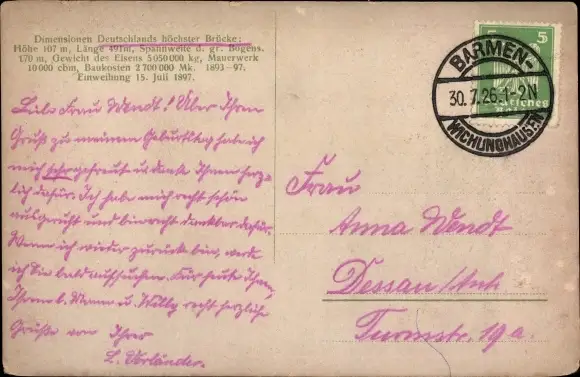 Dimensionen Deutschlands höchster Brücke:
Höhe 107 m, Länge 491 m, Spannweite d. gr. Bogens
170 m, Gewicht des Eisens 5 050 000 kg, Mauerwerk
10 000 cbm, Baukosten 2 700 000 Mk. 1893–97.
Einweihung 15. Juli 1897.
Liebe Frau Wendt! Über Ihren
Gruß zu meinem Geburtstag habe ich
mich sehr gefreut u. danke Ihnen herz-
lich dafür. Ich habe mich recht schön
ausgeruht und bin recht dankbar dafür.
Wenn ich wieder zurück bin, werde
ich Sie bald aufsuchen. Für heute Ihnen,
Ihrem l. Mann u. Willy recht herzliche
Grüße von Ihrer
L. Vorländer.
5 5
BARMEN-
30.7.26.1-2N
WICHLINGHAUSEN
Frau
Anna Wendt
Dessau/Anh
Turmstr. 19a.